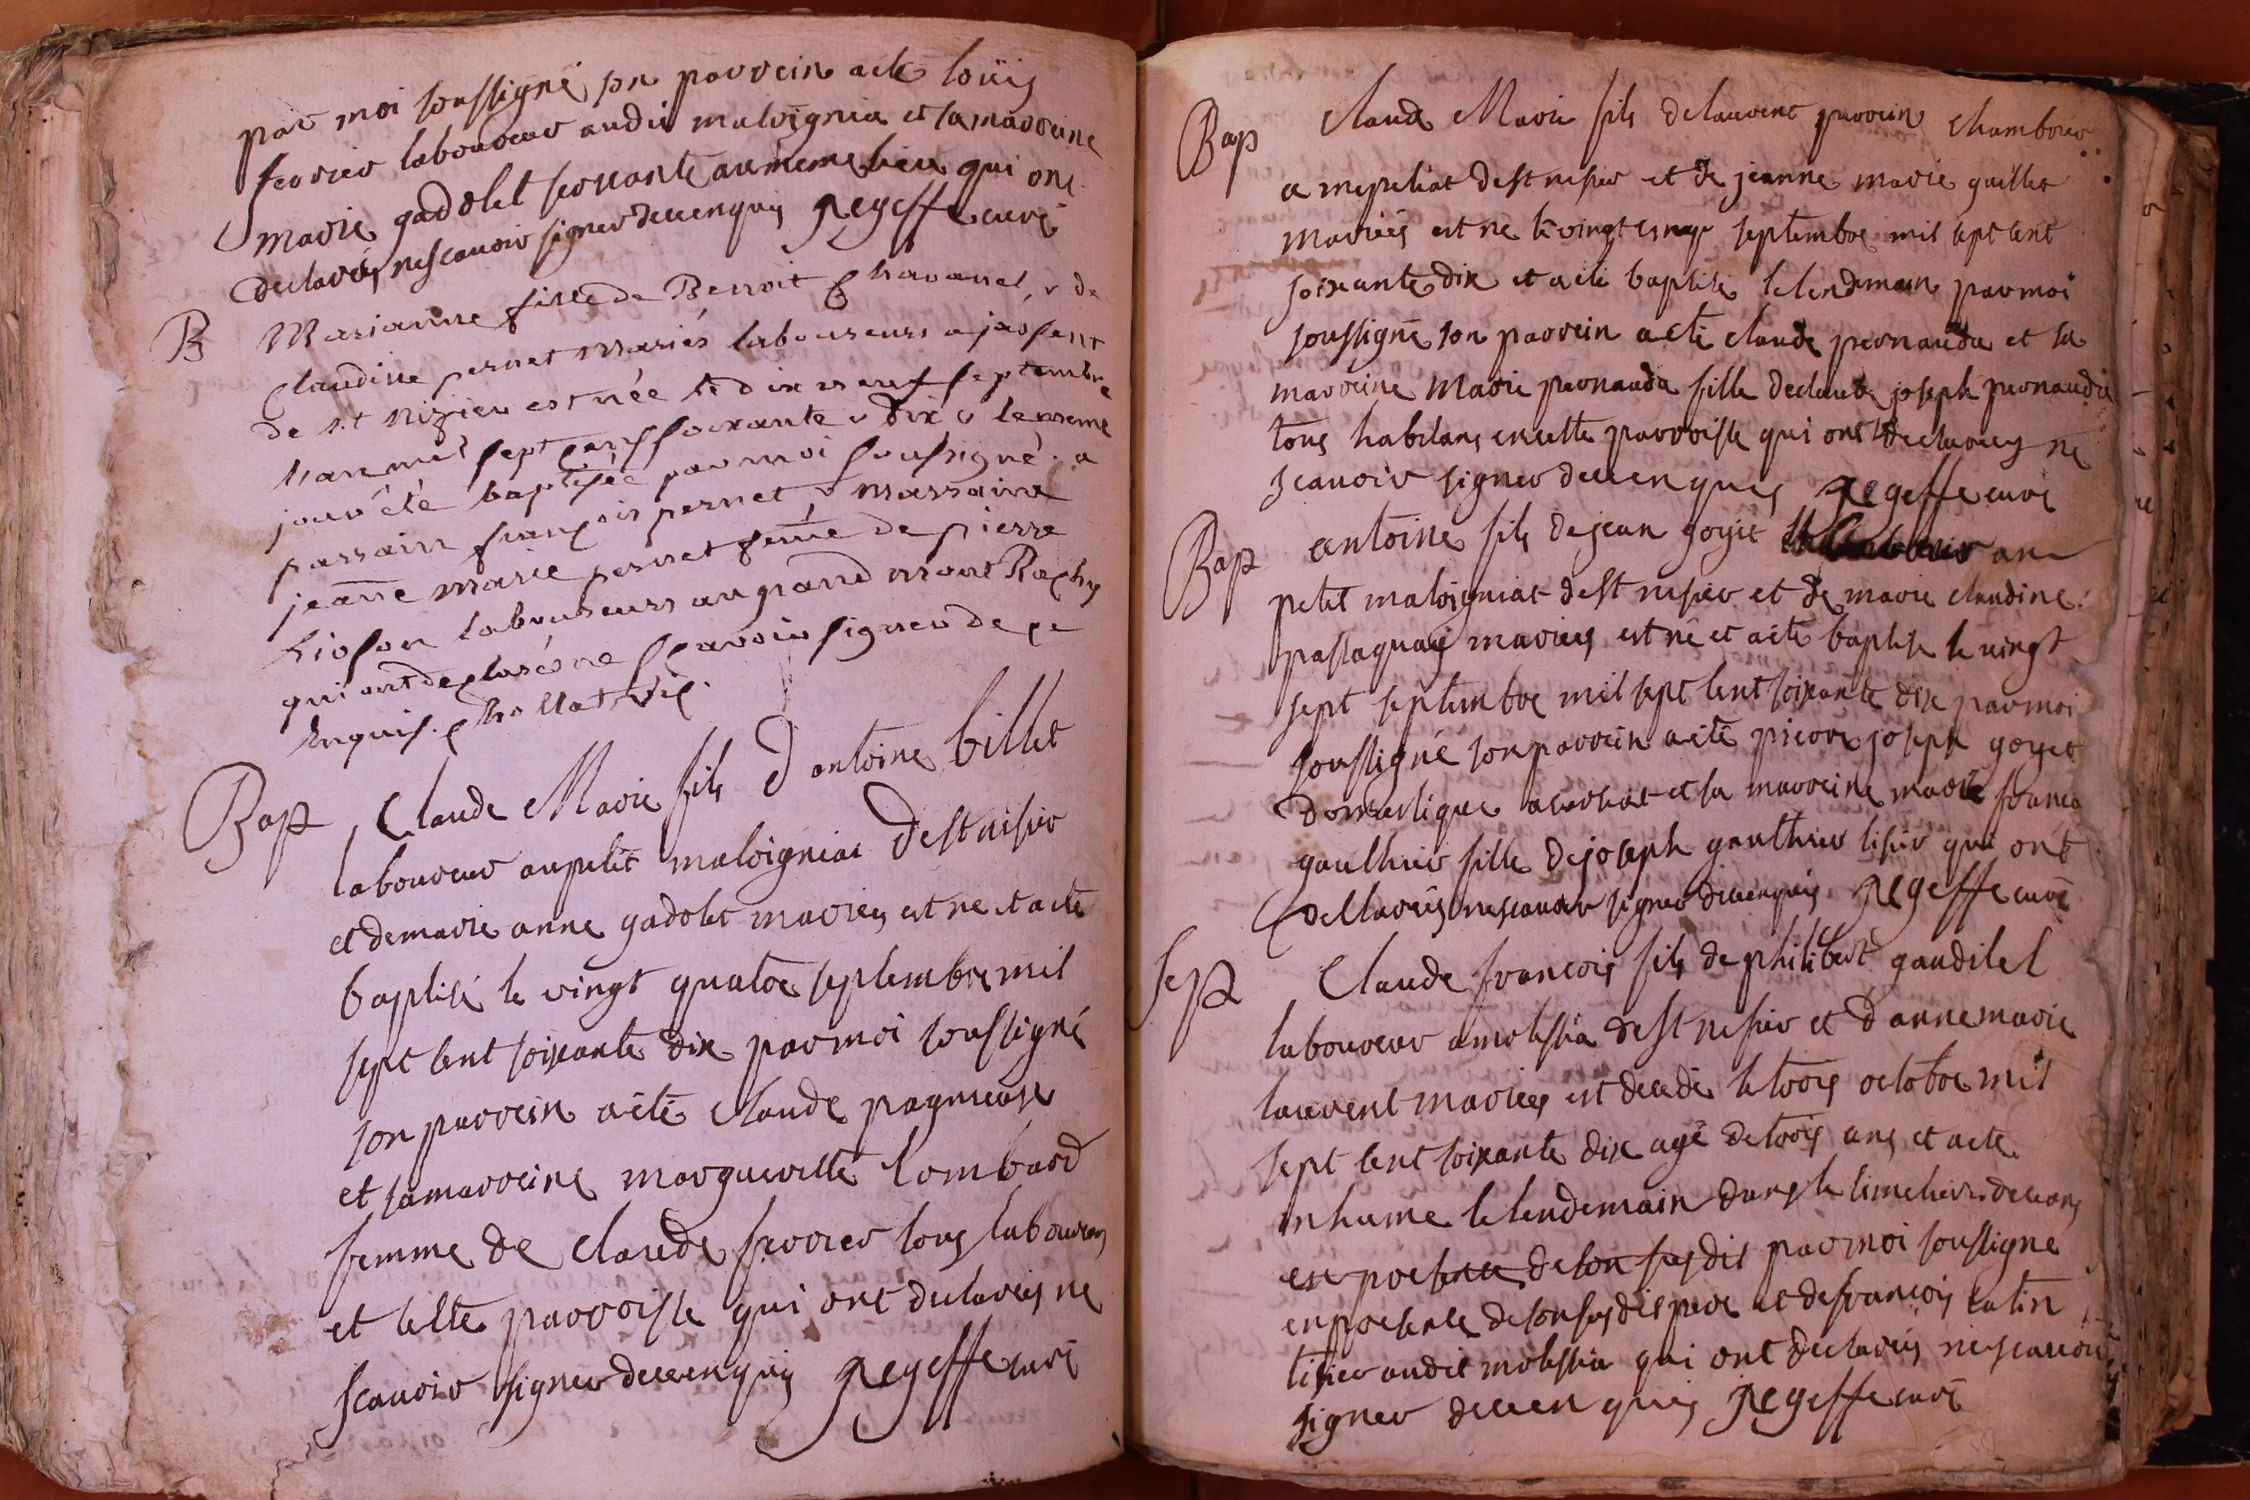 par moi soussigné son parrein a eté loüis
ferrier laboureur audit maloigniat et sa marreine
marie gadolet servante au meme lieu qui ont
declarés ne scavoir signer de ce enquis regeffe curé
B Marianne fille de Benoit Chavanel, & de
Claudine pernet mariés laboureurs a
de st nizier est née le dix neuf septembre
mil sept cens soixante & dix & le meme
jour été baptisée par moi soussigné. a
parrain françois pernet & marraine
jeanne marie pernet feme de pierre
laboureurs au grand mont
qui ont declaré ne sçavoir signer de ce
Enquis. Chollat vic.
Bap Claude Marie fils d antoine billet
laboureur au petit maloigniat de st nisier
et de marie anne gadolet mariés est ne et a eté
baptisé le vingt quatre septembre mil
sept cent soixante dix par moi soussigné
son parrein a eté claude
et sa marreine margueritte lombard
femme de claude ferrier tous laboureurs
et cette parroisse qui ont declarés ne
scavoir signer de ce enquis regeffe curé
Bap Claude Marie fils de laurent perrein chambrier
a mepeliat de st nisier et de jeanne marie guillet
mariés est né le vingt septembre mil sept cent
soixante dix et a eté baptisé le lendemain par moi
soussigné son parrein a eté claude pernauda et sa
marreine Marie pernauda fille de claude joseph pernauda
tous habitans en cette parroisse qui ont declarés ne
scavoir signer de ce enquis regeffe curé
Bap antoine fils de jean goyet au
petit maloigniat de st nisier et de marie claudine
mariés est né et a eté baptisé le vingt
sept septembre mil sept cent soixante dix par moi
soussigné son parrein a eté pierre joseph goyet
domestique et sa marreine marie
gauthier fille de joseph gauthier tisier qui ont
declarés ne scavoir signer de ce enquis regeffe curé
sep Claude françois fils de philibert gaudilet
laboureur a molissia de st nisier et d anne marie
laurent mariés est decedé le trois octobre mil
sept cent soixante dix agé de trois ans et a eté
inhumé le lendemain dans le simetiere de ceans
en presence de son susdit par moi soussigné
en presence de son susdit pere et de françois catin
tisier audit molissia qui ont declarés ne scavoir
signer de ce enquis regeffe curé